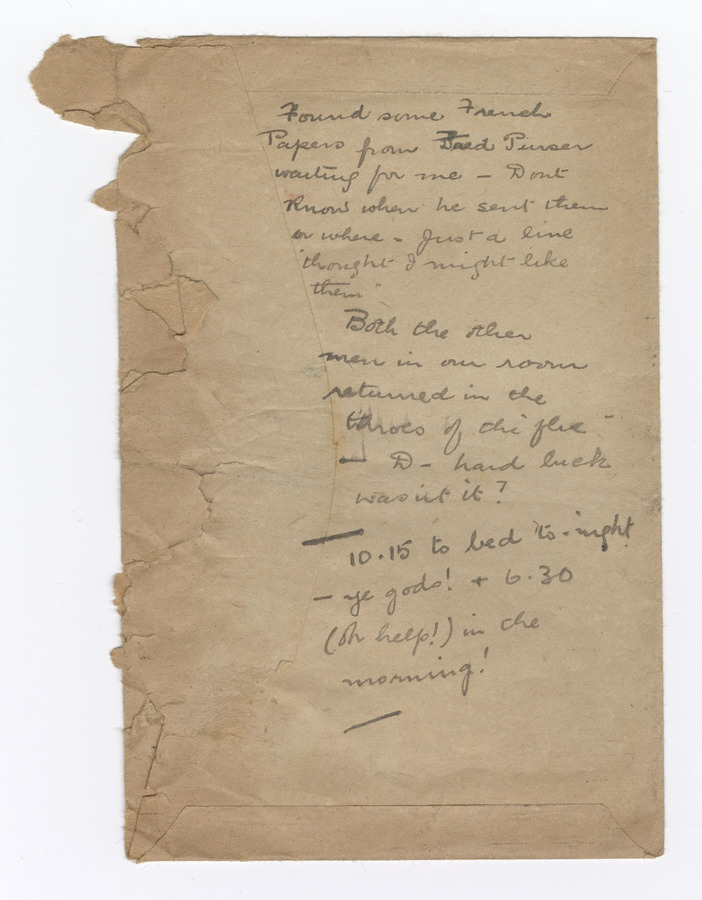 Found some French
Papers from Fred Purser
waiting for me - Dont
know when he sent them
or where - Just a line
"thought I might like
them"
Both the other
men in our room
returned in the
throes of the flue -
- D- hard luck
wasn't it?
10.15 to bed to-night
- ye gods! + 6.30
(oh help!) in the
morning!